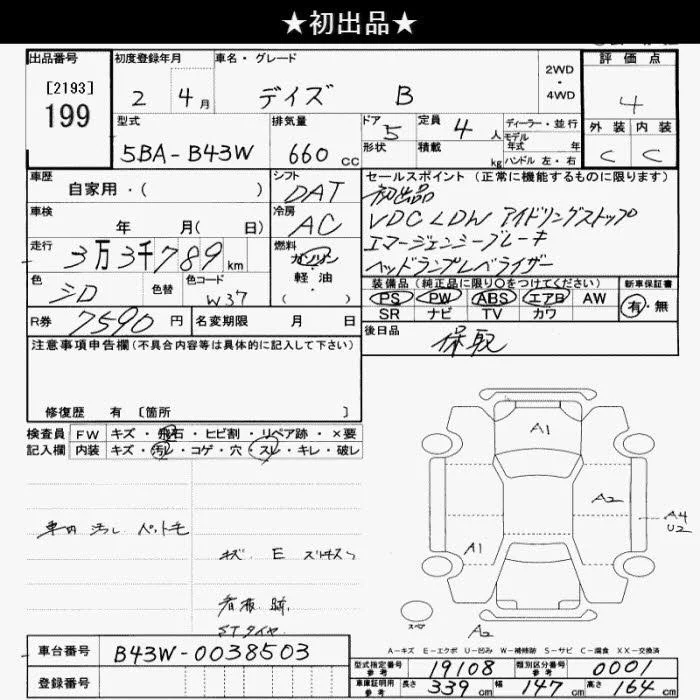 ★初出品★
出品番号 初度登録年月 車名・グレード 2WD・4WD 評価点
[2193]
199 2 4月 デイズ B 4
型式 排気量 ドア 5 定員 4人 ディーラー・並行 外装 内装
モデル年式 年
5BA-B43W 660cc 形状 積載 kg ハンドル 左・右 C C
車歴 シフト セールスポイント (正常に機能するものに限ります)
自家用・( ) DAT 初出品
車検 冷房 VDC LDW アイドリングストップ
年 月( 日) AC エマージェンシーブレーキ
走行 3万3千789km 燃料 ガソリン ヘッドランプレベライザー
軽・油
( )
色 色替 色コード 装備品 (純正品に限り○をつけてください) 新車保証書
シロ W37 PS PW ABS エアB AW 有・無
SR ナビ TV カワ
R券 7590円 名変期限 月 日 後日品
保取
注意事項申告欄(不具合内容等は具体的に記入して下さい)
修復歴 有 〔箇所 〕
検査員 FW キズ・飛石・ヒビ割・リペア跡・×要
記入欄 内装 キズ・汚レ・コゲ・穴・スレ・キレ・破レ
車内 汚レ ペット毛
キズ E スリキズ
看板跡
STタイヤ
A1
A2
A4
U2
A1
A2
A-キズ E-エクボ U-凹み W-補修跡 S-サビ C-腐食 XX-交換済
車台番号 B43W-0038503
登録番号
型式指定番号 参考 19108 類別区分番号 参考 0001
車庫証明用 参考 長さ 339cm 幅 147cm 高さ 164cm